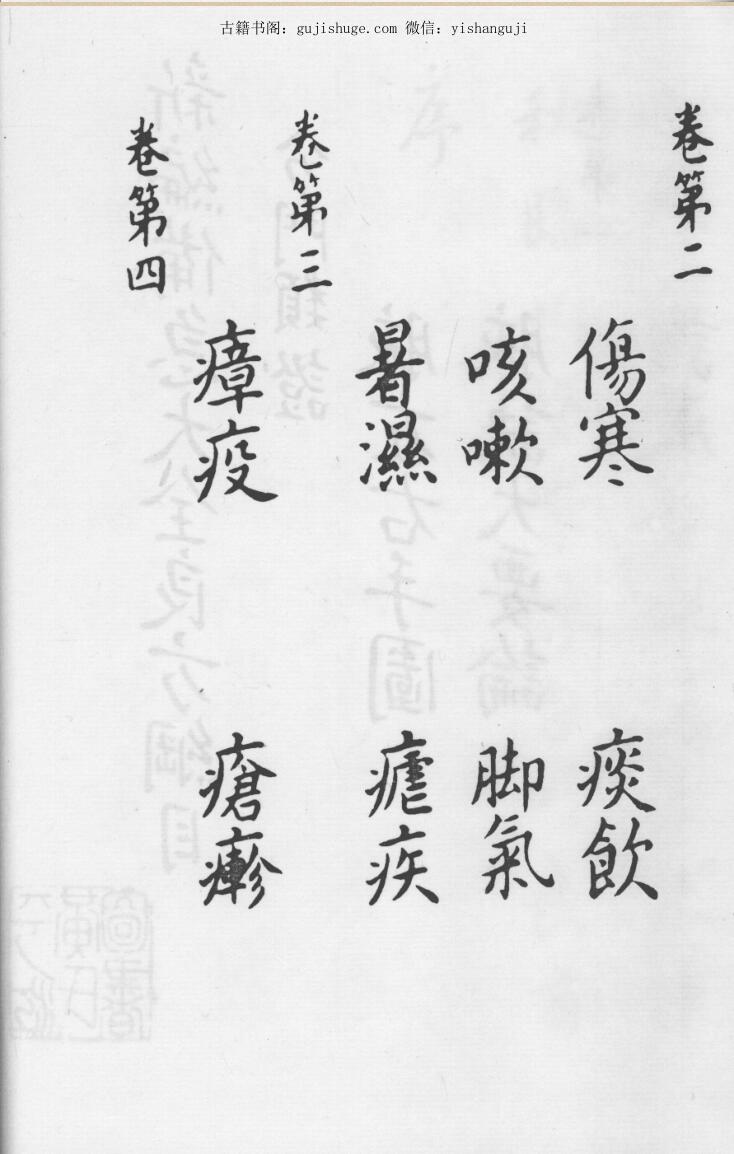 古籍书阁：gujishuge.com 微信：yishanguji
卷第二
傷寒 痰飲
咳嗽 脚氣
卷第三
暑濕 瘧疾
瘴疫 瘡疹
卷第四